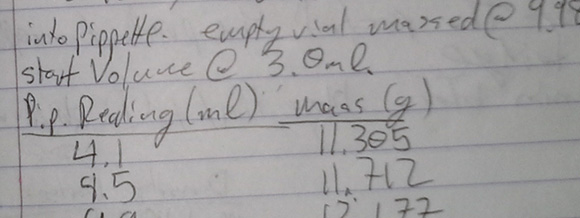 into Pippette. empty vial massed @ 9.98
start Volume @ 3.0ml.
Pip. Reading (ml) maas (g)
4.1 11.305
4.5 11.712